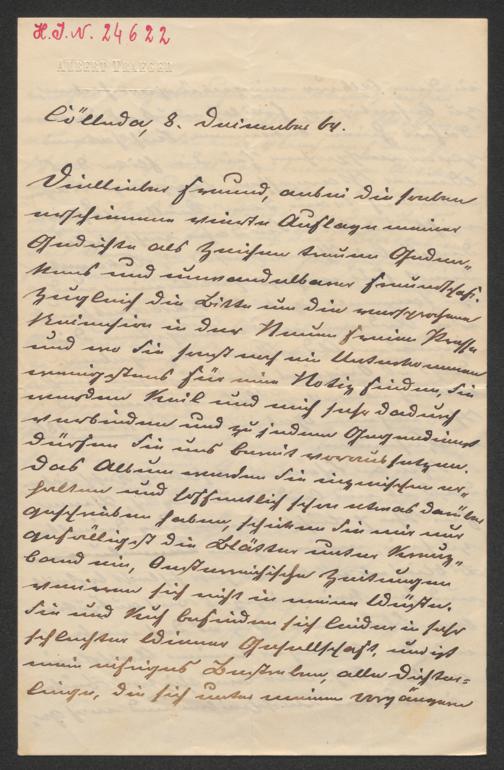 H.I.N. 24622
ALBERT TRAEGER
Cölleda, 8. Dezember 64.
Viellieber Freund, anbei die soeben
erschienene vierte Auflage meiner
Gedichte als Zeichen treuen Geden-
kens und unwandelbarer Freundschaft.
Zugleich die Bitte um die versprochene
Recension in der Neuen Freien Presse
und wo Sie sonst noch ein Unterkommen
wenigstens für eine Notiz finden, Sie
werden Keil und mich sehr dadurch
verbinden und zu jedem Gegendienst
dürfen Sie uns bereit voraussetzen.
Das Album werden Sie inzwischen er-
halten und hoffentlich schon etwas darüber
geschrieben haben, schicken Sie mir nur
gefälligst die Blätter unter Kreuz-
band ein, Oesterreichische Zeitungen
verirren sich nicht in meine Wüste.
Sie und befinden sich leider in sehr
schlechter Wiener Gesellschaft, und ist
mein eifriges Bestreben, alle Dichter-
linge, die sich unter meinen Vorgängern